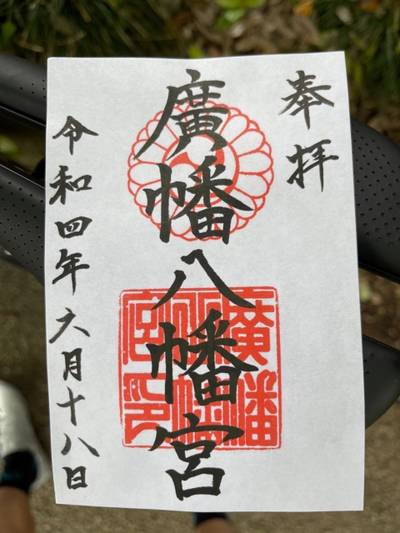 奉拝
廣幡八幡宮
廣幡
八幡
宮印
令和四年六月十八日